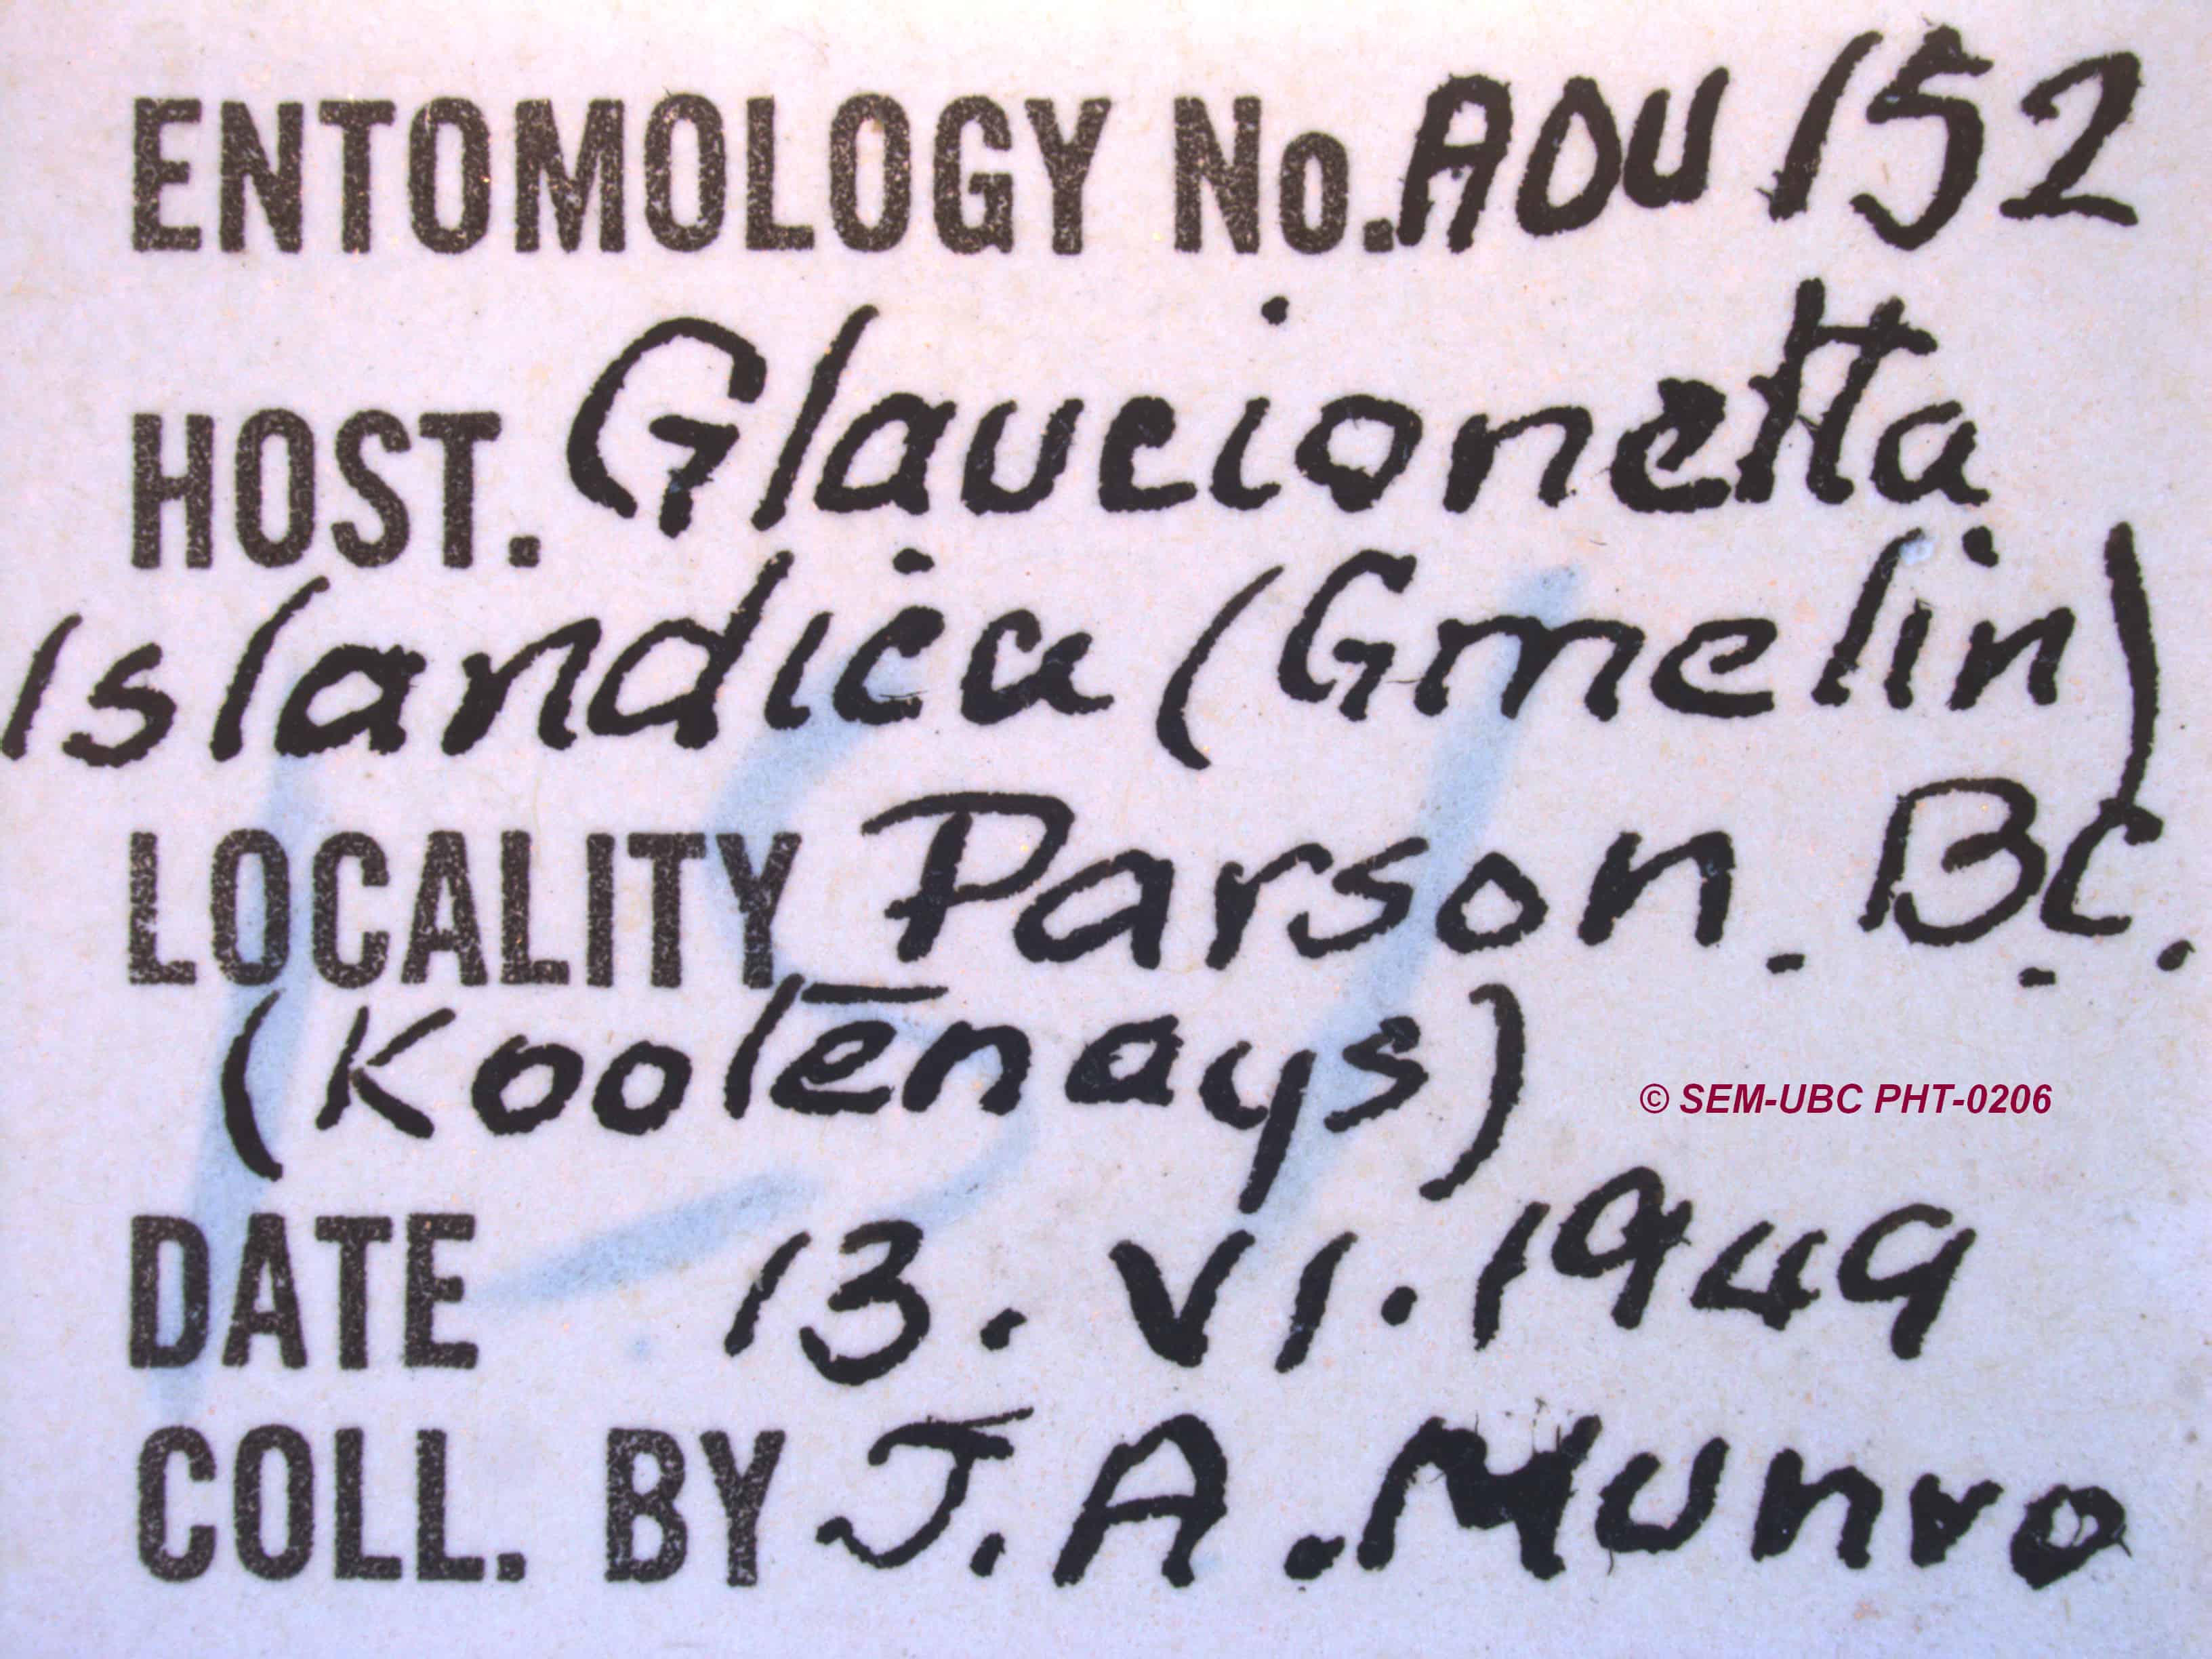 ENTOMOLOGY No. AOU 152
HOST. Glaucionetta
Islandica (Gmelin)
LOCALITY Parson. B.C.
(Kootenays)
© SEM-UBC PHT-0206
DATE 13. VI. 1949
COLL. BY J. A. Munro